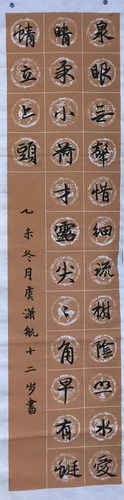 泉眼无聲惜細流樹陰照水愛
晴柔小荷才露尖々角早有蜓
蜻立上頭
乙未冬月虞瀟航十二岁書